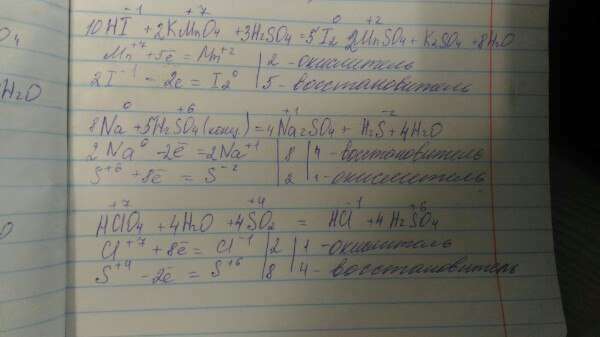 -1 +7 0 +2
10HI + 2KMnO4 + 3H2SO4 = 5I2 2MnSO4 + K2SO4 + 8H2O
Mn+7 + 5ē = Mn+2 | 2 - окислитель
2I-1 - 2ē = I2 0 | 5 - восстановитель
H2O
0 +6 +1 -2
8Na + 5H2SO4 (конц) = 4Na2SO4 + H2S + 4H2O
2Na0 - 2ē = 2Na+1 | 8 | 4 - востановитель
S+6 + 8ē = S-2 | 2 | 1 - окислитель
+7 +4 -1 +6
HClO4 + 4H2O + 4SO2 = HCl + 4H2SO4
Cl+7 + 8ē = Cl-1 | 2 | 1 - окислитель
S+4 - 2ē = S+6 | 8 | 4 - восстановитель